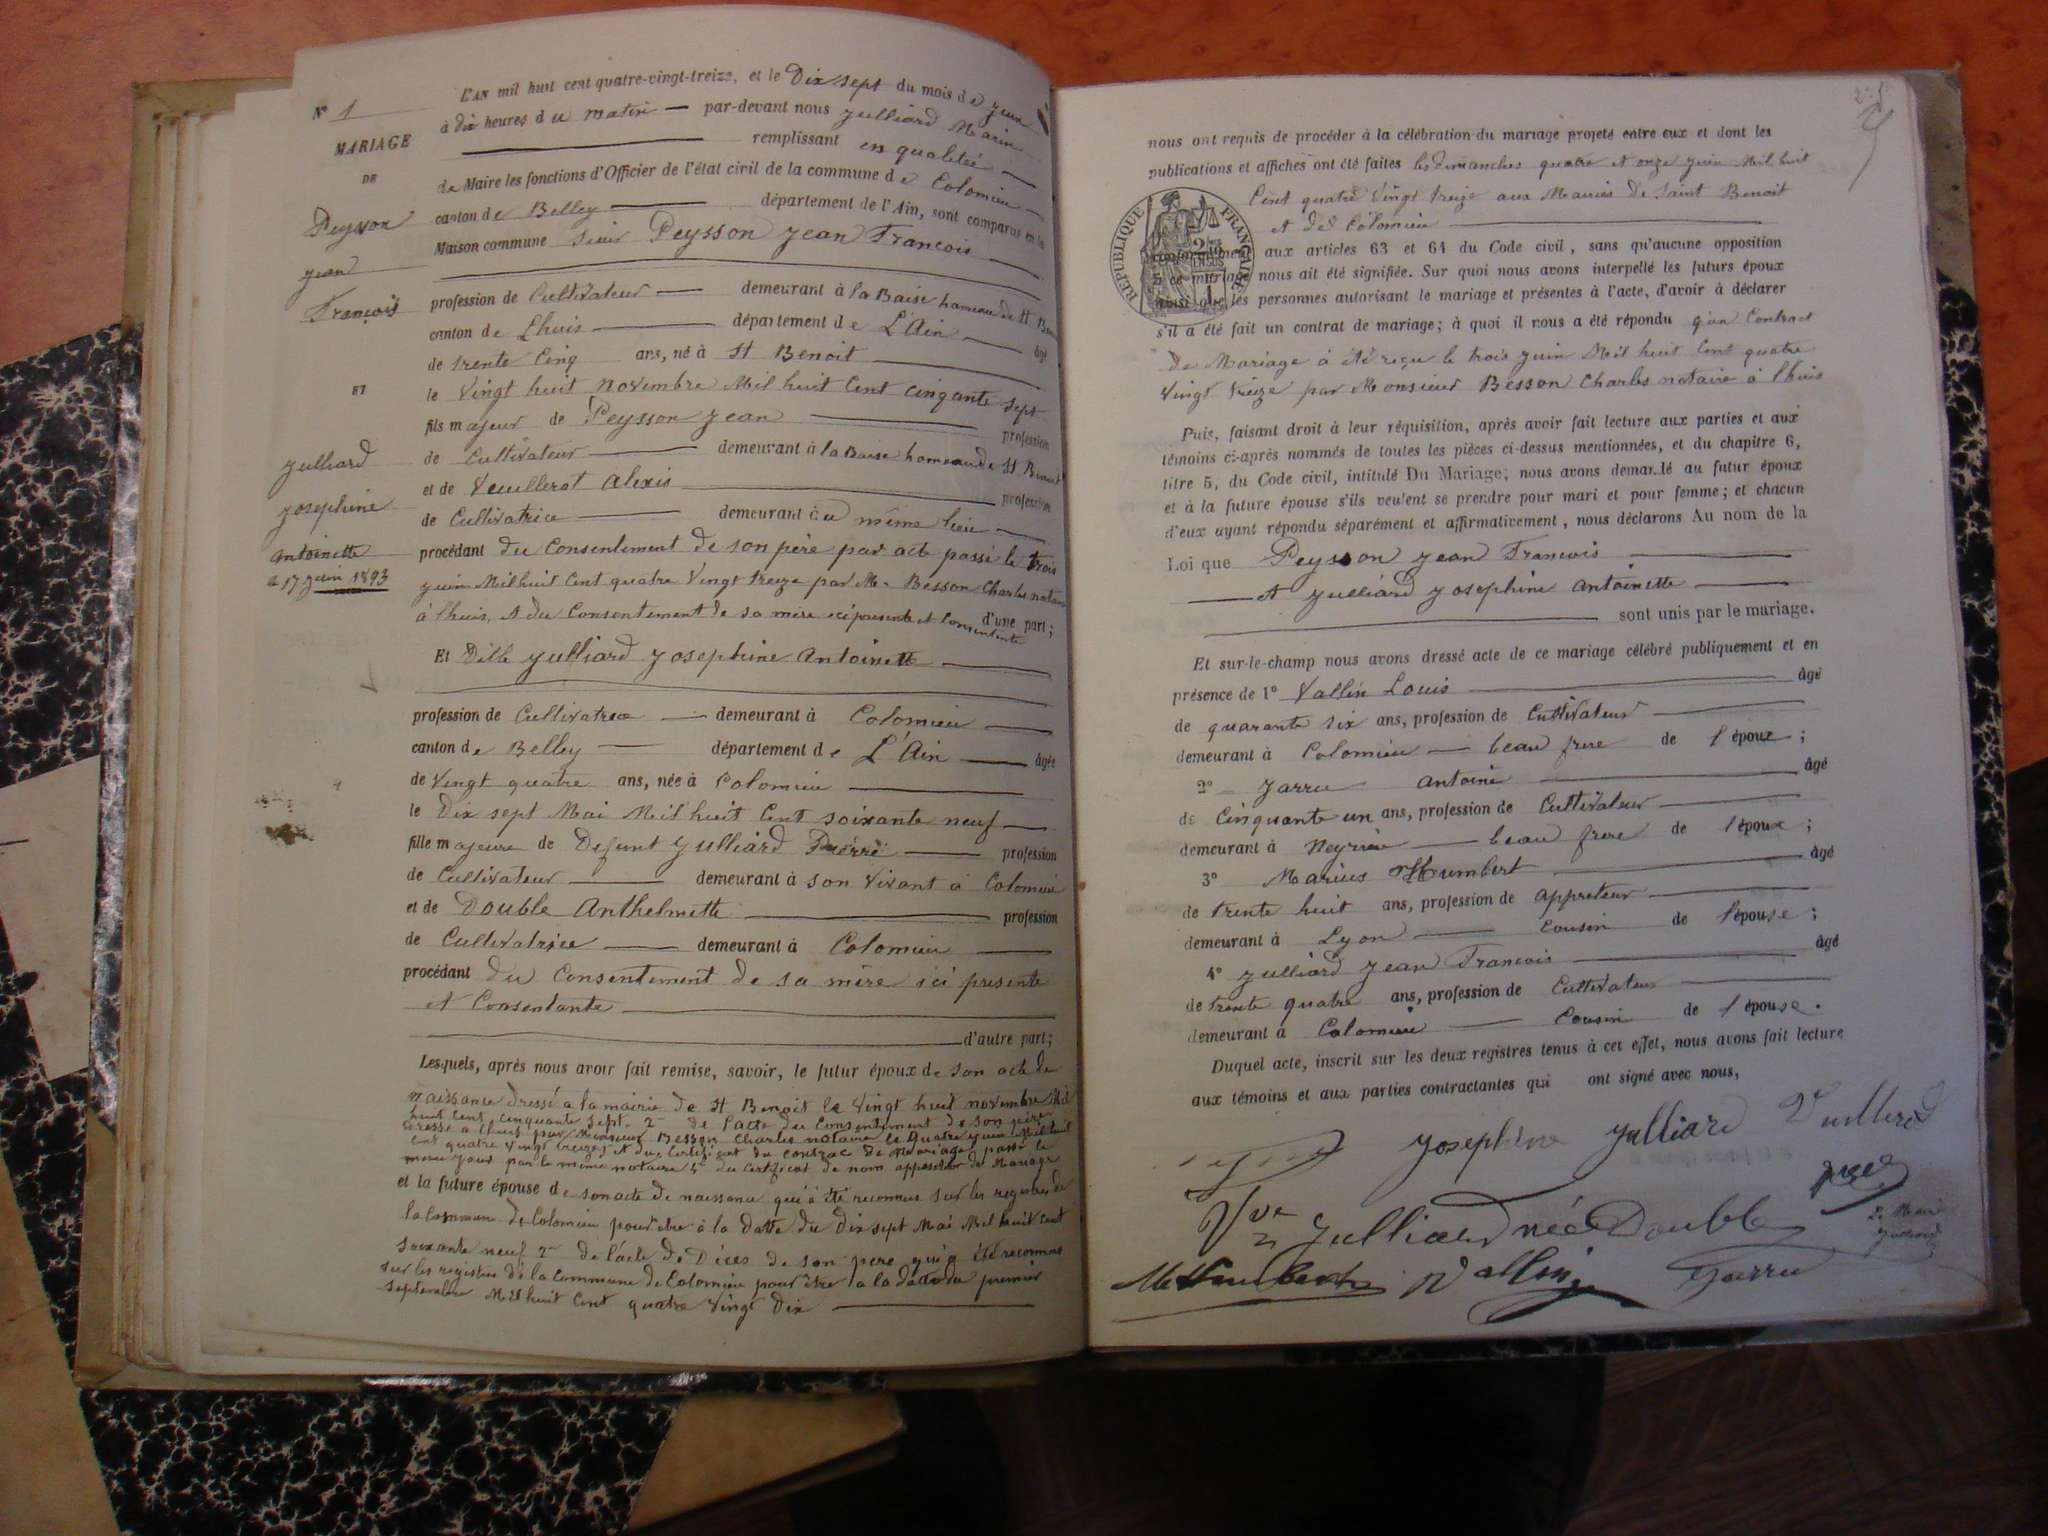 N° 1
MARIAGE
DE
Peysson
Jean
François
ET
Julliard
Josephine
Antoinette
17 Juin 1893
L'AN mil huit cent quatre-vingt-treize, et le Dix sept du mois de Juin
à dix heures du matin par-devant nous Julliard Marin
remplissant en qualitée
de Maire les fonctions d'Officier de l'état civil de la commune de Colomieu
canton de Belley département de l'Ain, sont comparus en la
Maison commune sieur Peysson Jean François
profession de Cultivateur demeurant à la Baise hameau de St Benoit
canton de Lhuis département de L'Ain âgé
de trente Cinq ans, né à St Benoit
le Vingt huit novembre Mil huit Cent cinqante sept
fils majeur de Peysson Jean profession
de Cultivateur demeurant à la Baise hameau de St Benoit
et de Veuillerot Alexis profession
de Cultivatrice demeurant au même lieu
procédant du Consentement de son père par acte passé le trois
Juin Mil huit Cent quatre Vingt treize par Me Besson Charles notaire
à Lhuis, et du Consentement de sa mère ici présente et Consentente d'une part;
Et Dlle Julliard Josephine Antoinette
profession de Cultivatrice demeurant à Colomieu
canton de Belley département de L'Ain âgée
de Vingt quatre ans, née à Colomieu
le Dix sept Mai Mil huit Cent soixante neuf
fille majeure de Defunt Julliard Pierre profession
de Cultivateur demeurant à son Vivant à Colomieu
et de Double Anthelmette profession
de Cultivatrice demeurant à Colomieu
procédant du Consentement de sa mère ici presente
et Consentante
d'autre part;
Lesquels, après nous avoir fait remise, savoir, le futur époux de son acte de
naissance dressé a la mairie de St Benoit le Vingt huit novembre Mil
huit Cent cinquante sept. 2° de l'acte du Consentement de son père
dressé a Lhuis par Monsieur Besson Charles notaire le quatre Juin Mil huit
Cent quatre Vingt treize, et du Certificat du contrac de Mariage passé le
meme jour par le même notaire 4° du Certificat de nom apposition de Mariage
et la future épouse de son acte de naissance qui à été reconnus sur les registres de
la Commune de Colomieu pour être à la datte du dix sept Mai Mil huit Cent
Soixante neuf 2° de l'acte de Déces de son pere qui a été reconnus
sur les registres de la Commune de Colomieu pour être a la date du premier
Septembre Mil huit Cent quatre Vingt Dix
nous ont requis de procéder à la célébration du mariage projeté entre eux et dont les
publications et affiches ont été faites les dimanches quatre et onze Juin Mil huit
Cent quatre Vingt treize aux Mairies de Saint Benoit
et de Colomieu
RÉPUBLIQUE FRANÇAISE
conformément aux articles 63 et 64 du Code civil, sans qu'aucune opposition
à ce mariage nous ait été signifiée. Sur quoi nous avons interpellé les futurs époux
ainsi que les personnes autorisant le mariage et présentes à l'acte, d'avoir à déclarer
s'il a été fait un contrat de mariage; à quoi il nous a été répondu q'un Contract
de Mariage à été reçu le trois Juin Mil huit Cent quatre
Vingt Treize par Monsieur Besson Charles notaire à Lhuis
Puis, faisant droit à leur réquisition, après avoir fait lecture aux parties et aux
témoins ci-après nommés de toutes les pièces ci-dessus mentionnées, et du chapitre 6,
titre 5, du Code civil, intitulé Du Mariage, nous avons demandé au futur époux
et à la future épouse s'ils veulent se prendre pour mari et pour femme; et chacun
d'eux ayant répondu séparément et affirmativement, nous déclarons Au nom de la
Loi que Peysson Jean Francois
et Julliard Josephine Antoinette
sont unis par le mariage.
Et sur-le-champ nous avons dressé acte de ce mariage célébré publiquement et en
présence de 1° Vallin Louis âgé
de quarante six ans, profession de Cultivateur
demeurant à Colomieu beau frere de l'époux;
2° Jarru Antoine âgé
de Cinquante un ans, profession de Cultivateur
demeurant à Neyrieu beau frere de l'époux;
3° Marius Humbert âgé
de trente huit ans, profession de appreteur
demeurant à Lyon Cousin de l'épouse;
4° Julliard Jean Francois âgé
de trente quatre ans, profession de Cultivateur
demeurant à Colomieu Cousin de l'épouse.
Duquel acte, inscrit sur les deux registres tenus à cet effet, nous avons fait lecture
aux témoins et aux parties contractantes qui ont signé avec nous,
Josephine Julliard Vuillerod
Vve Julliard née Double
Le Maire
Julliard
M Humbert Vallin Jarru